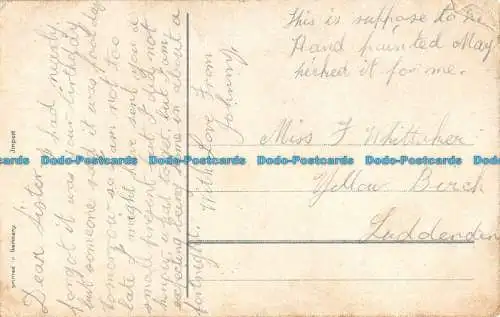 This is suppose to be
Hand painted May
picked it for me.
Miss F Whittaker
Yellow Birch
Luddenden
Dear Sister I had nearly
forgot it was your birthday
but someone said it was
tomorrow so I am not too
late I might have sent you a
small present but I did not
know what to get, but I am
expecting being home in about a
fortnight. With Love From
Johnny
printed in Germany
Import
www.abcpostcards.com
Bids-Postcards
Bids-Postcards
Bids-Postcards